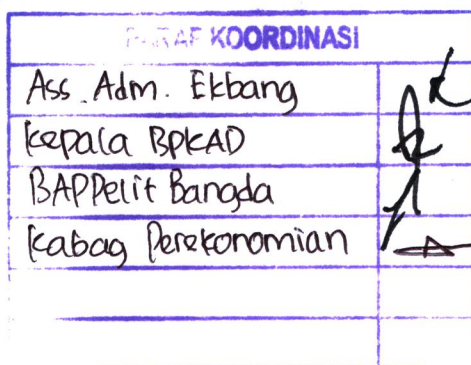 PARAF KOORDINASI
Ass. Adm. Ekbang
Kepala BPKAD
BAPPelit Bangda
Kabag Perekonomian